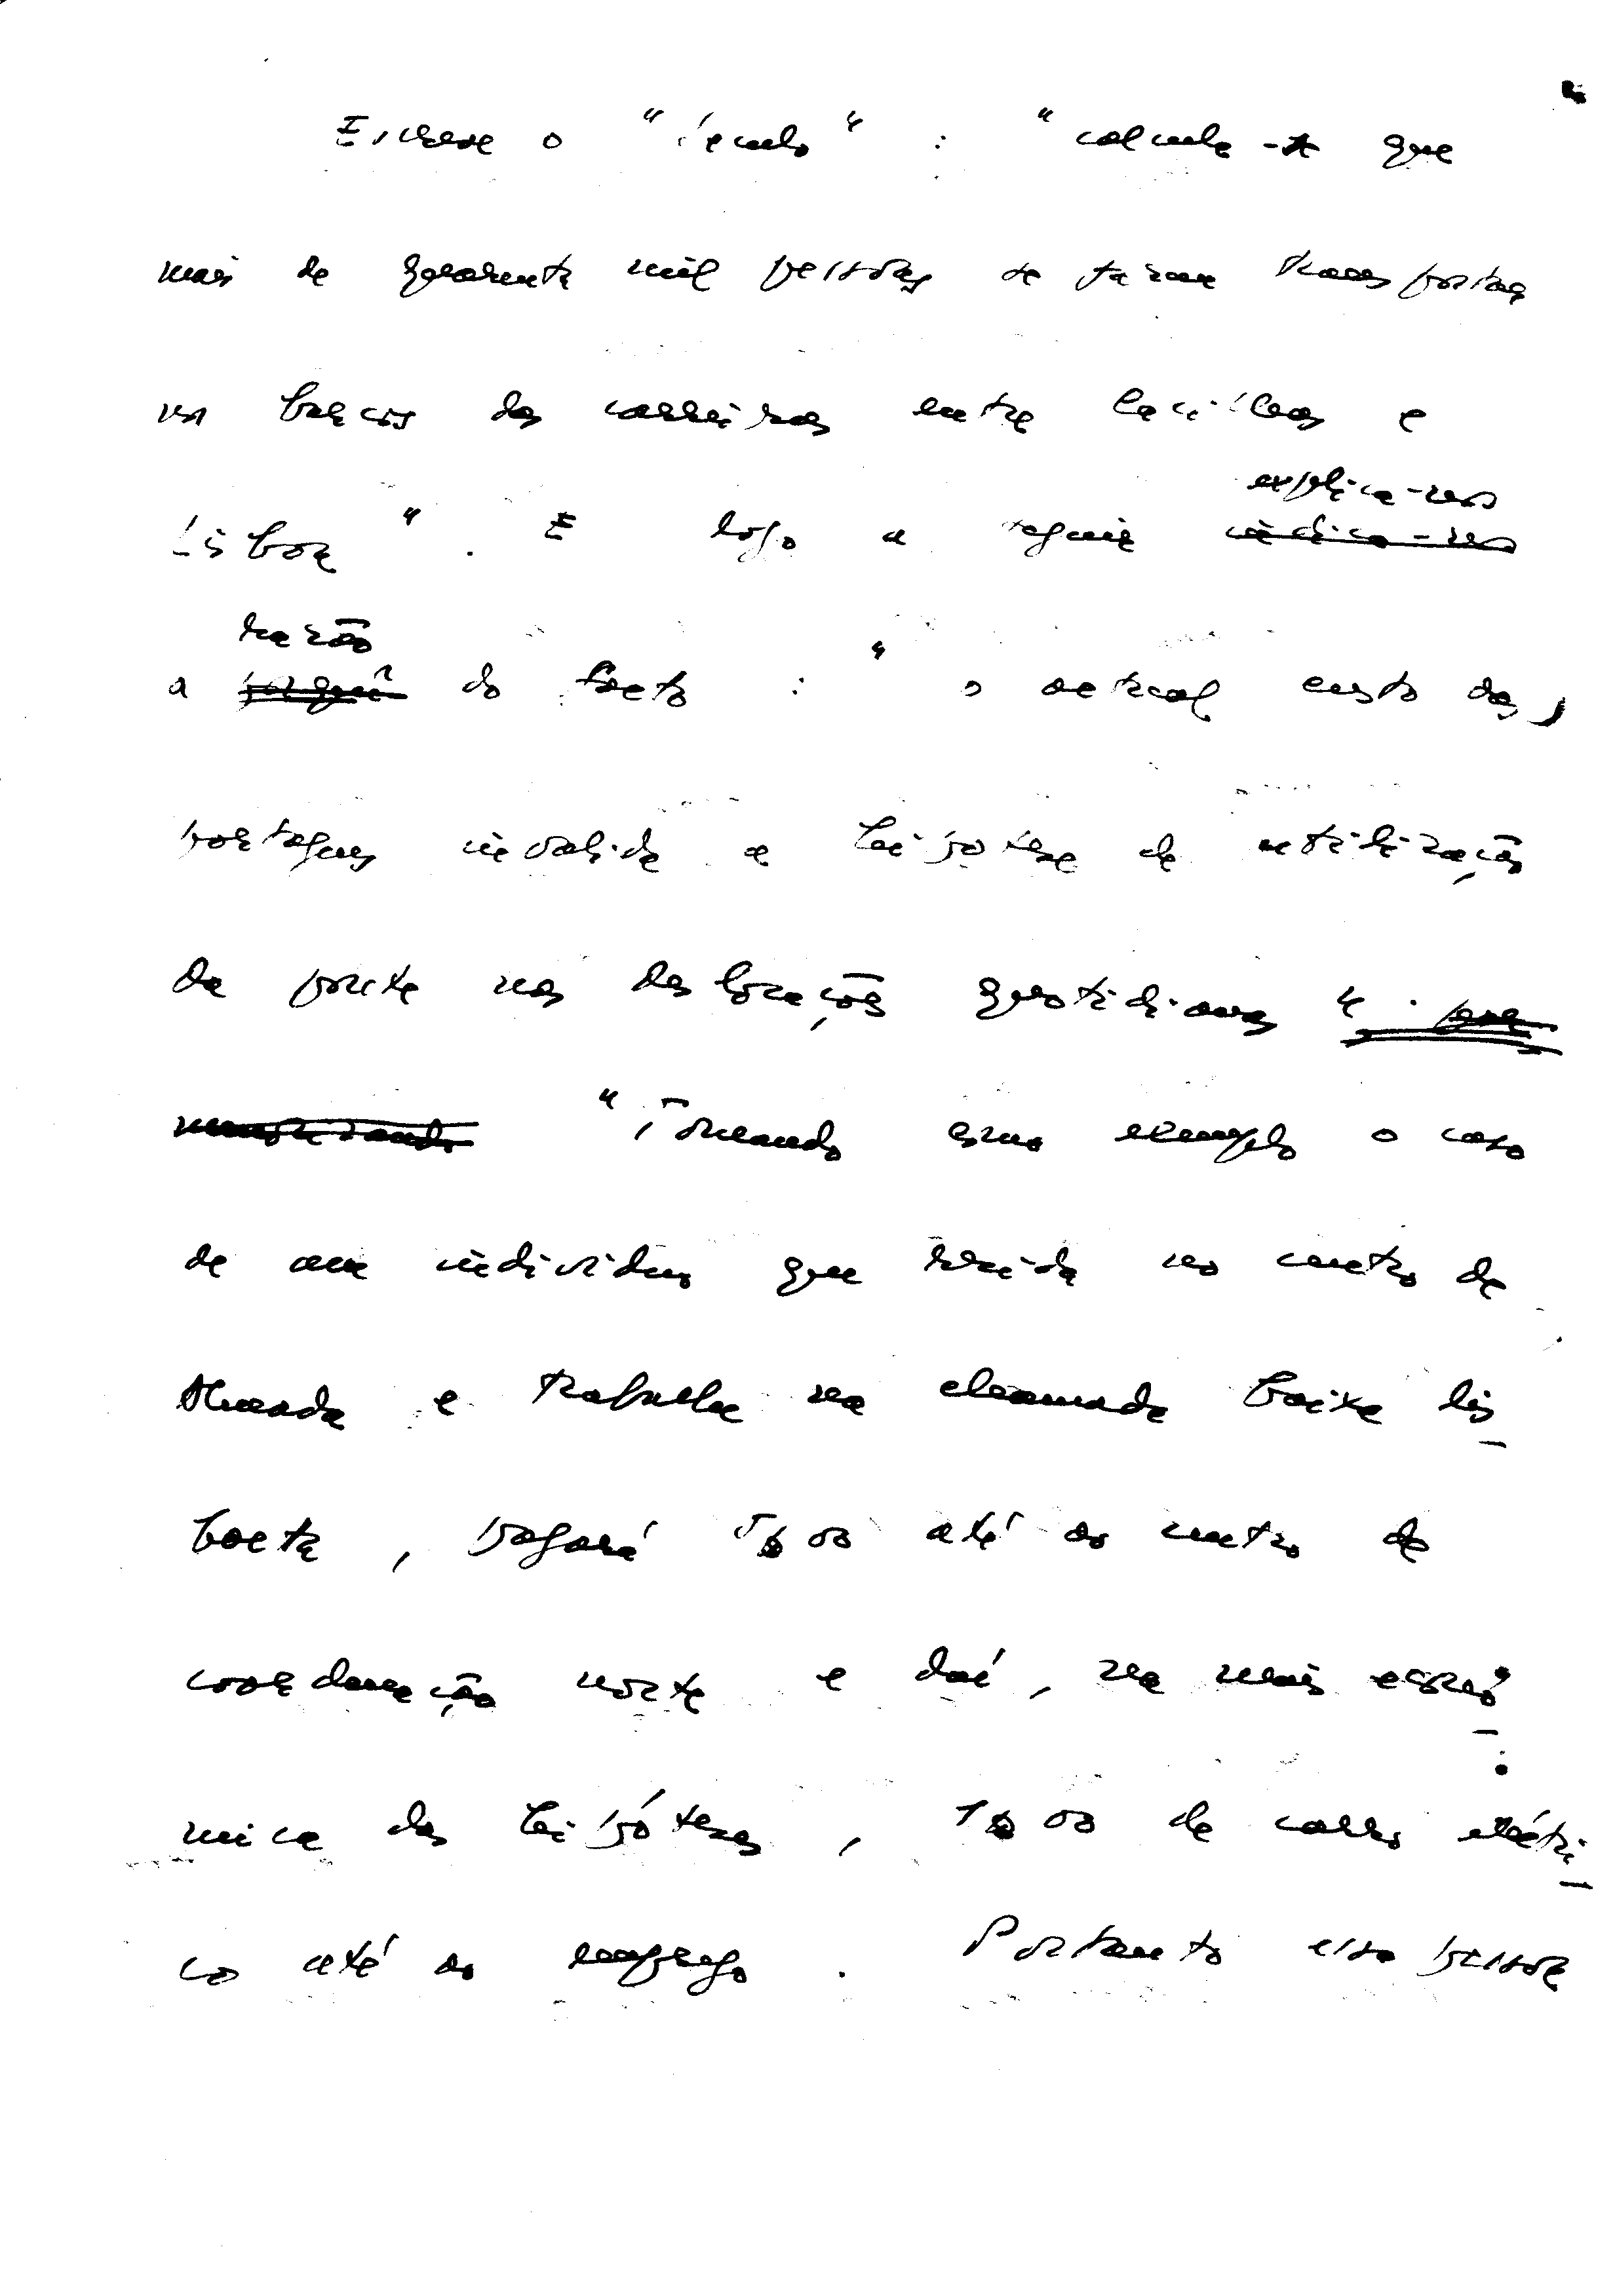 Escreve o "século" : "calcula-se que
mais de quarenta mil pessoas se fazem transportar
nos barcos das carreiras entre Cacilhas e
Lisboa". E logo a seguir explica-nos
indica-nos
razão
a porquê do facto : "o actual custo das
portagens invalida a hipótese de utilização
da ponte nas deslocações quotidianas".
"Tomando como exemplo o caso
de um indivíduo que resida no centro de
Almada e trabalhe na chamada baixa lis-
boeta, pagará 5$00 até ao centro de
coordenação norte e daí, na mais econó-
mica das hipóteses, 1$00 de carro eléctri-
co até ao emprego. Portanto essa pessoa